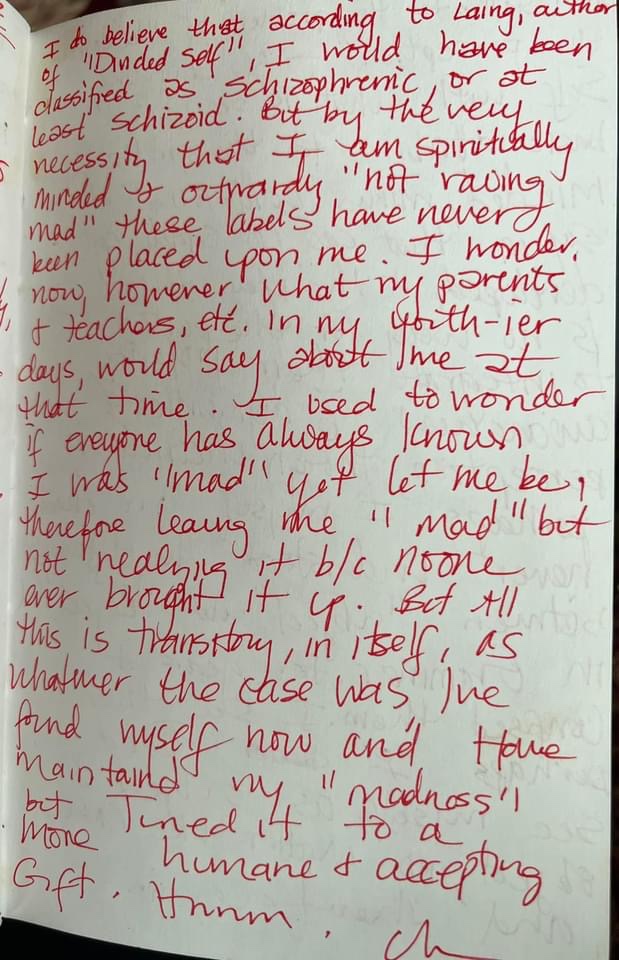 I do believe that according to Laing, author
of "Divided Self", I would have been
classified as schizophrenic, or at
least schizoid. But by the very
necessity that I am spiritually
minded & outwardly "not raving
mad" these labels have never
been placed upon me. I wonder,
now, however what my parents
& teachers, etc. in my youth-ier
days, would say about me at
that time. I used to wonder
if everyone has always known
I was "mad" yet let me be,
therefore leaving me "mad" but
not realizing it b/c noone
ever brought it up. But all
this is transitory, in itself, as
whatever the case was, I've
found myself now and Have
maintaind my "madness"
but Tuned it to a
more humane & accepting
Gift. Hmmm.